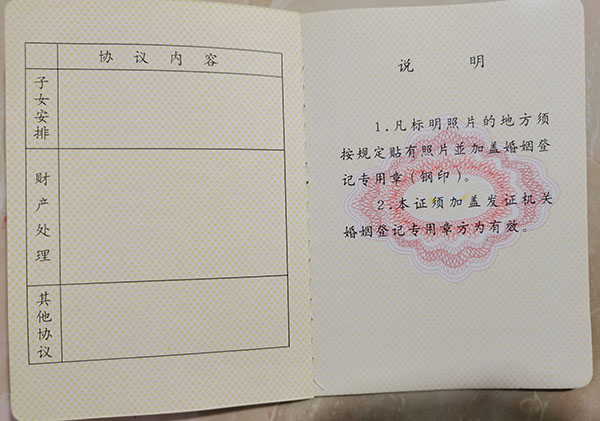 协议内容
子女安排
财产处理
其他协议
说明
1.凡标明照片的地方须
按规定贴有照片並加盖婚姻登
记专用章(钢印)。
2.本证须加盖发证机关
婚姻登记专用章方为有效。